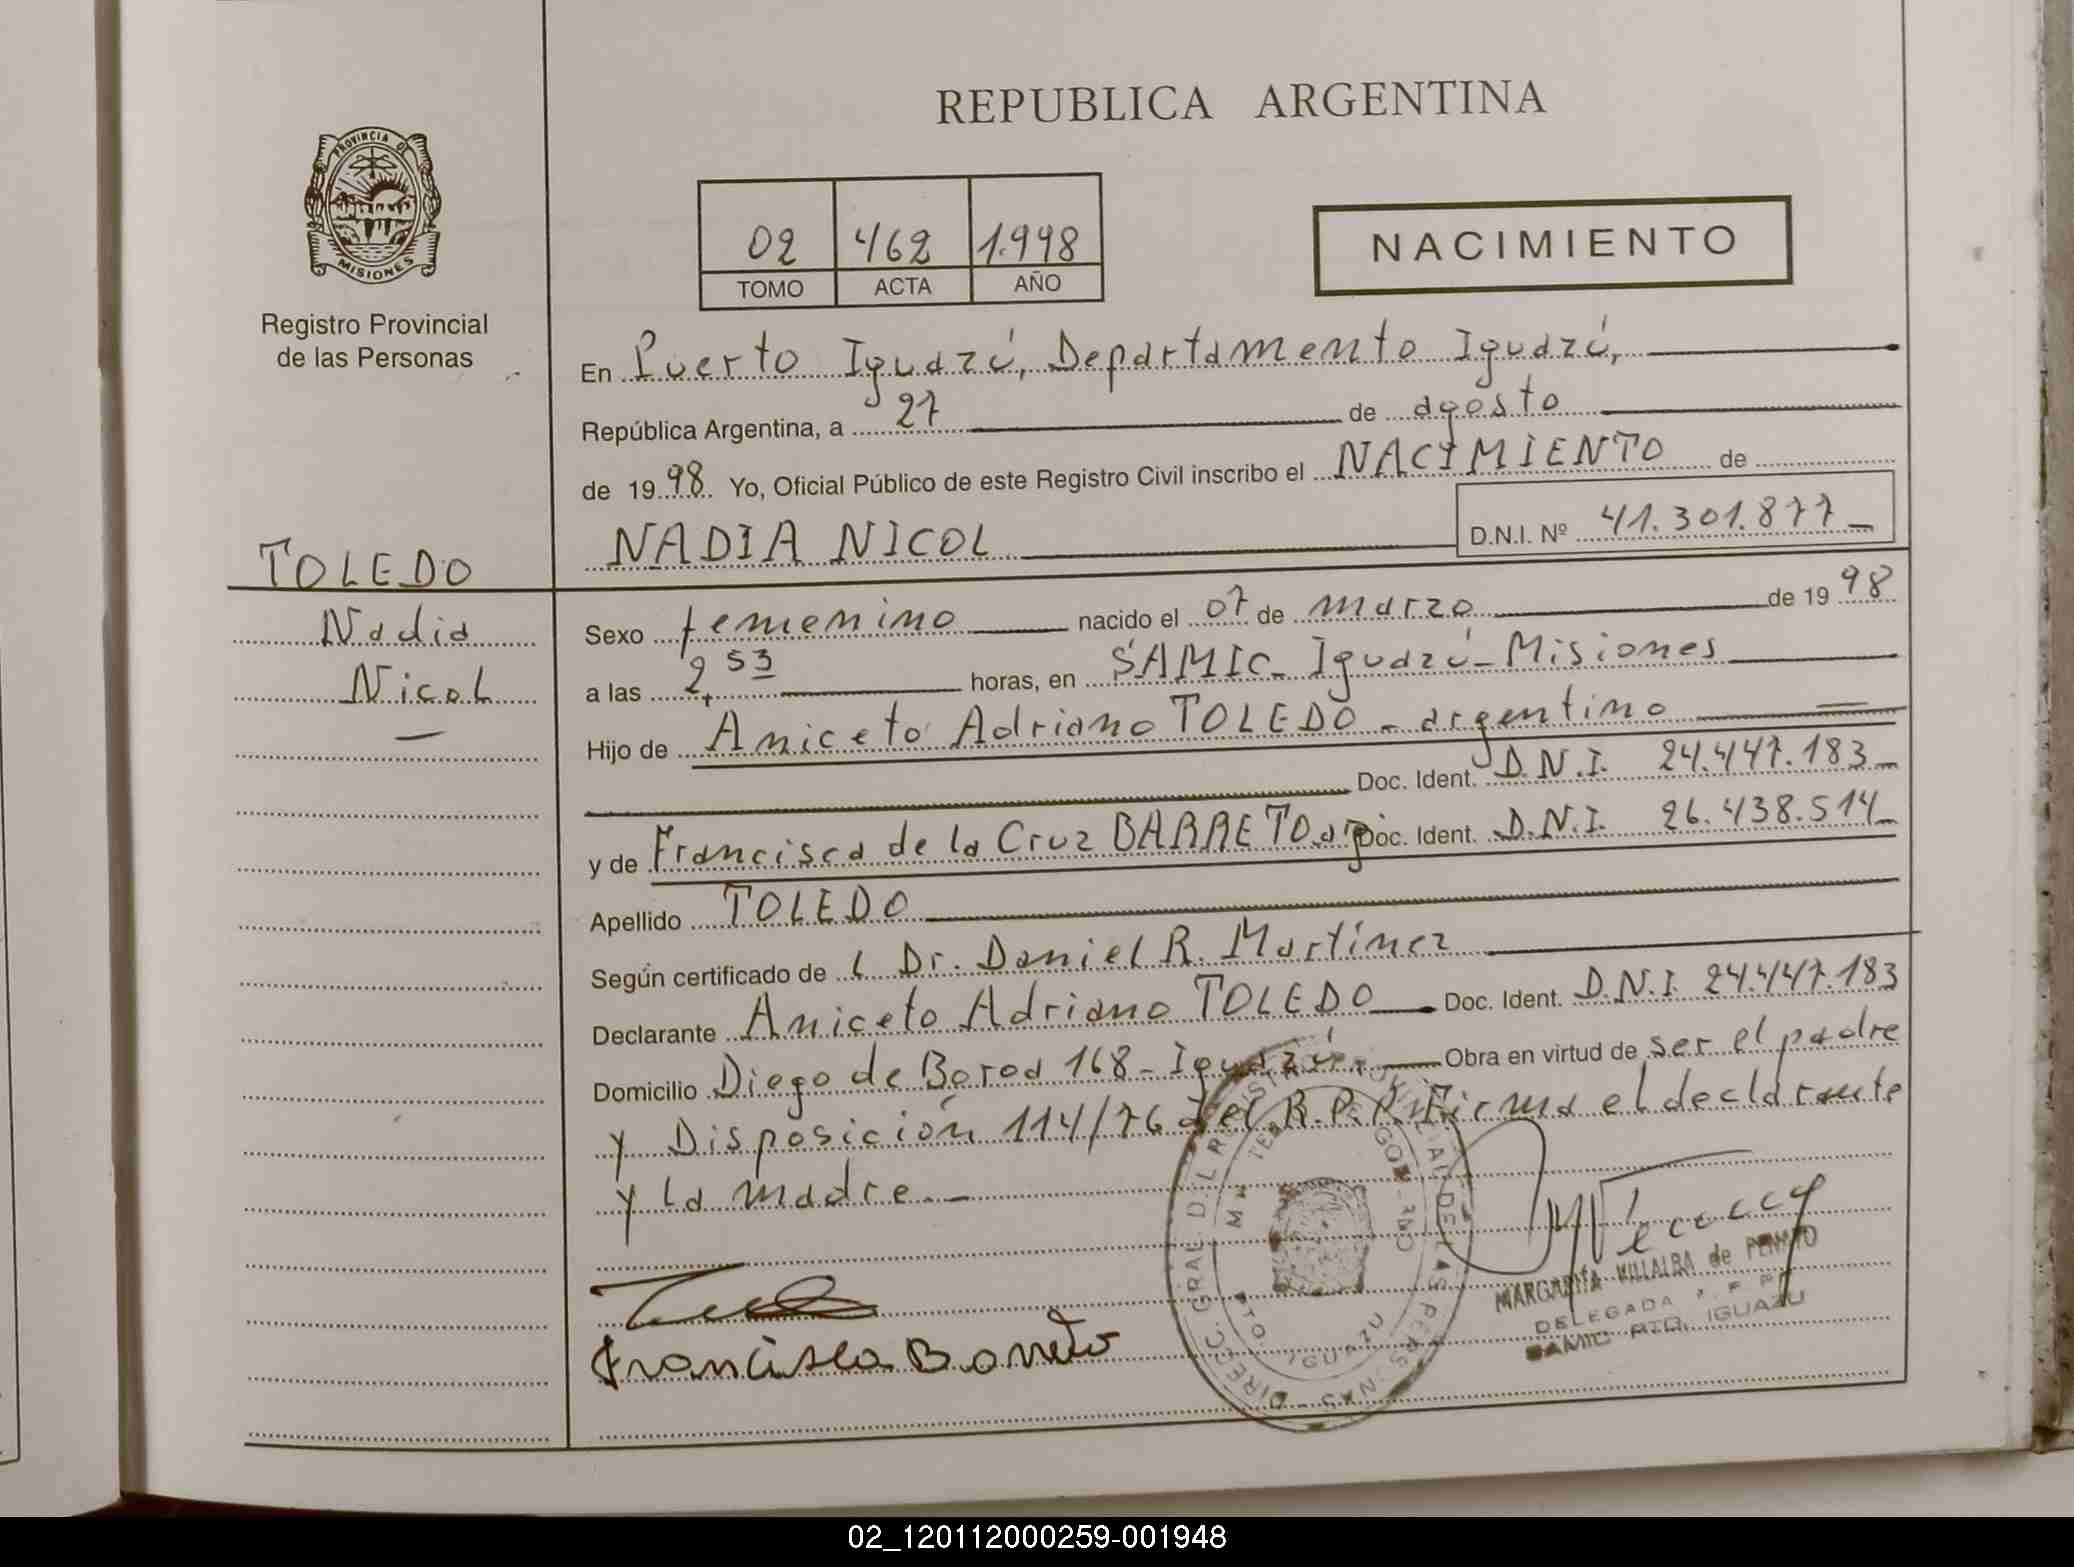 REPUBLICA ARGENTINA
PROVINCIA DE
MISIONES
Registro Provincial
de las Personas
02 462 1.998
TOMO ACTA AÑO
NACIMIENTO
En Puerto Iguazú, Departamento Iguazú,
República Argentina, a 27 de agosto
de 1998 Yo, Oficial Público de este Registro Civil inscribo el NACIMIENTO de
NADIA NICOL D.N.I. Nº 41.301.877
TOLEDO
Nadia
Nicol
Sexo femenino nacido el 07 de marzo de 1998
a las 2,53 horas, en SAMIC - Iguazú - Misiones
Hijo de Aniceto Adriano TOLEDO - argentino
Doc. Ident. D.N.I. 24.447.183
y de Francisca de la Cruz BARRETO arg Doc. Ident. D.N.I. 26.438.514
Apellido TOLEDO
Según certificado de l Dr. Daniel R. Martínez
Declarante Aniceto Adriano TOLEDO Doc. Ident. D.N.I. 24.447.183
Domicilio Diego de Boroa 168 - Iguazú Obra en virtud de ser el padre
y Disposición 114/76 del R.P.P. Firma el declarante
y la madre
Francisca Barreto
MARGARITA VILLALBA de
DELEGADA
SAMIC PTO. IGUAZU
DIRECC. GRAL. DEL REGISTRO PROVINCIAL DE LAS PERSONAS
PTO. IGUAZU
02_120112000259-001948